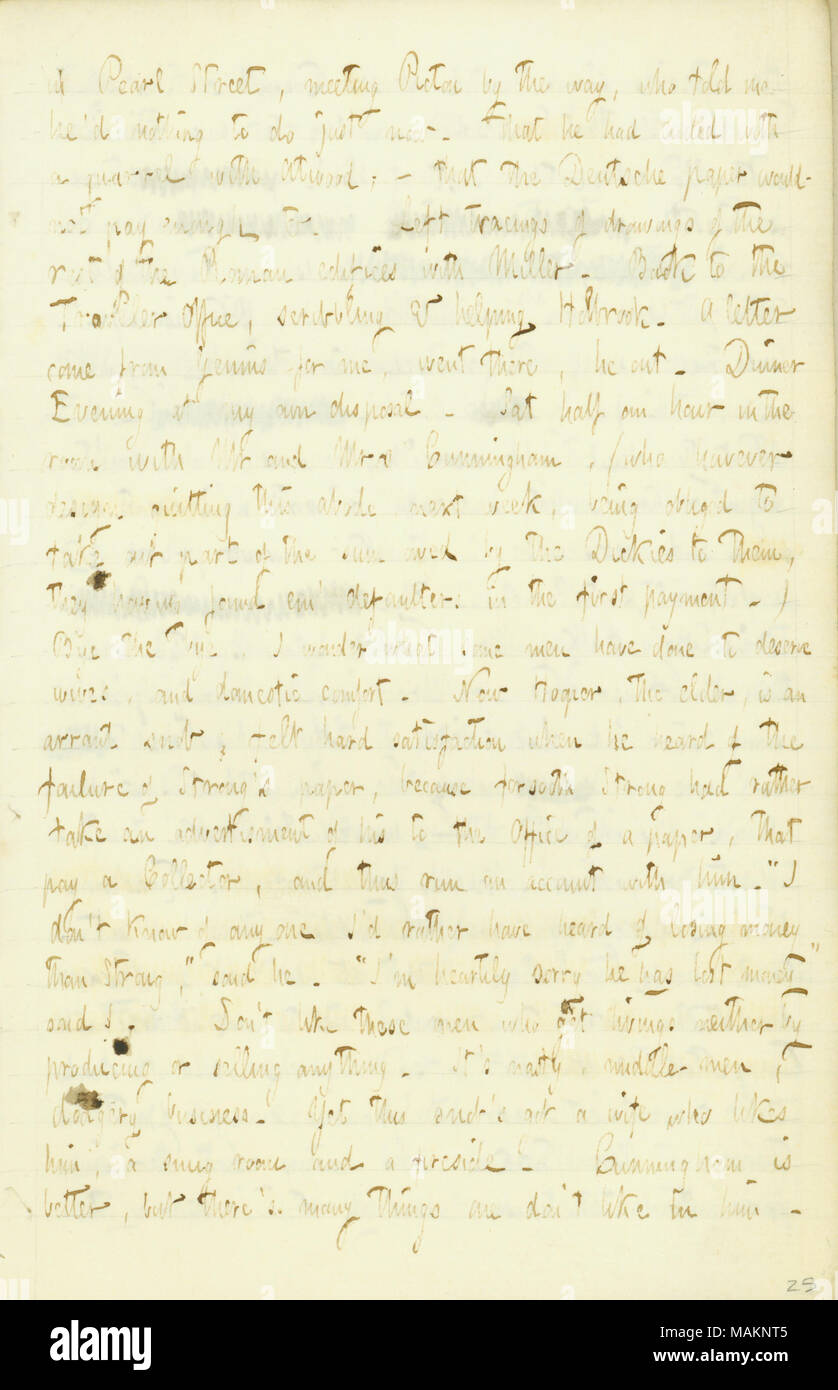 in Pearl Street, meeting Picton by the way, who told me
he'd nothing to do just now. That he had ended with
a quarrel with Atwood; — that the Deutsche paper would
not pay enough &c. Left tracings of drawings of the
rest of the Roman edifices with Miller. Back to the
Traveller Office, scribbling & helping Holbrook. A letter
come from Genins for me, went there, he out. Dinner
Evening at my own disposal. Sat half an hour in the
room with Mr and Mrs Cunningham, (who however
design quitting this abode next week, being obliged to
take out part of the sum owed by the Dickies to them,
they having found em' defaulters in the first payment. )
Bye the bye, I wonder what some men have done to deserve
wives, and domestic comfort. Now Hogier, the elder, is an
arrant snob, felt hard satisfaction when he heard of the
failure of Strong's paper, because forsooth Strong had rather
take an advertisment of his to the Office of a paper, that
pay a Collector, and thus run an account with him. "I
don't know of any one I'd rather have heard of losing money
than Strong," said he. "I'm heartily sorry he has lost money"
said I. Don't like these men who get livings neither by
producing or selling anything. It's nasty, middle-men,
business. Yet this snob's got a wife who likes
him, a snug room and a fireside! Cunningham is
better, but there's many things one don't like in him —
25
alamy
Image ID: MAKNT5
www.alamy.com